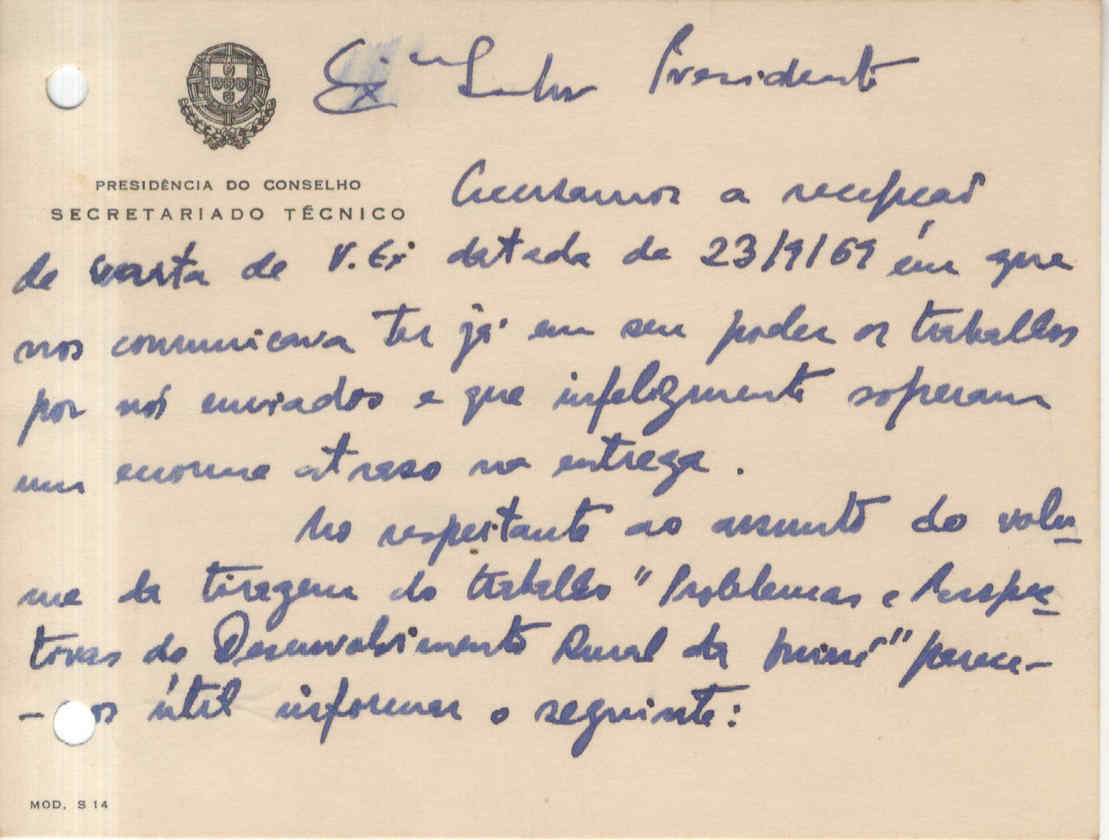 Exmo Senhor Presidente
PRESIDÊNCIA DO CONSELHO
SECRETARIADO TÉCNICO
Acusamos a recepção
da carta de V. Exª datada de 23/9/69 em que
nos comunicava ter já em seu poder os trabalhos
por nós enviados e que infelizmente sofreram
um enorme atraso na entrega.
No respeitante ao assunto do volu-
me da tiragem do trabalho "Problemas e Perspec-
tivas do Desenvolvimento Rural da Guiné" parece-
-nos útil informar o seguinte:
MOD. S 14